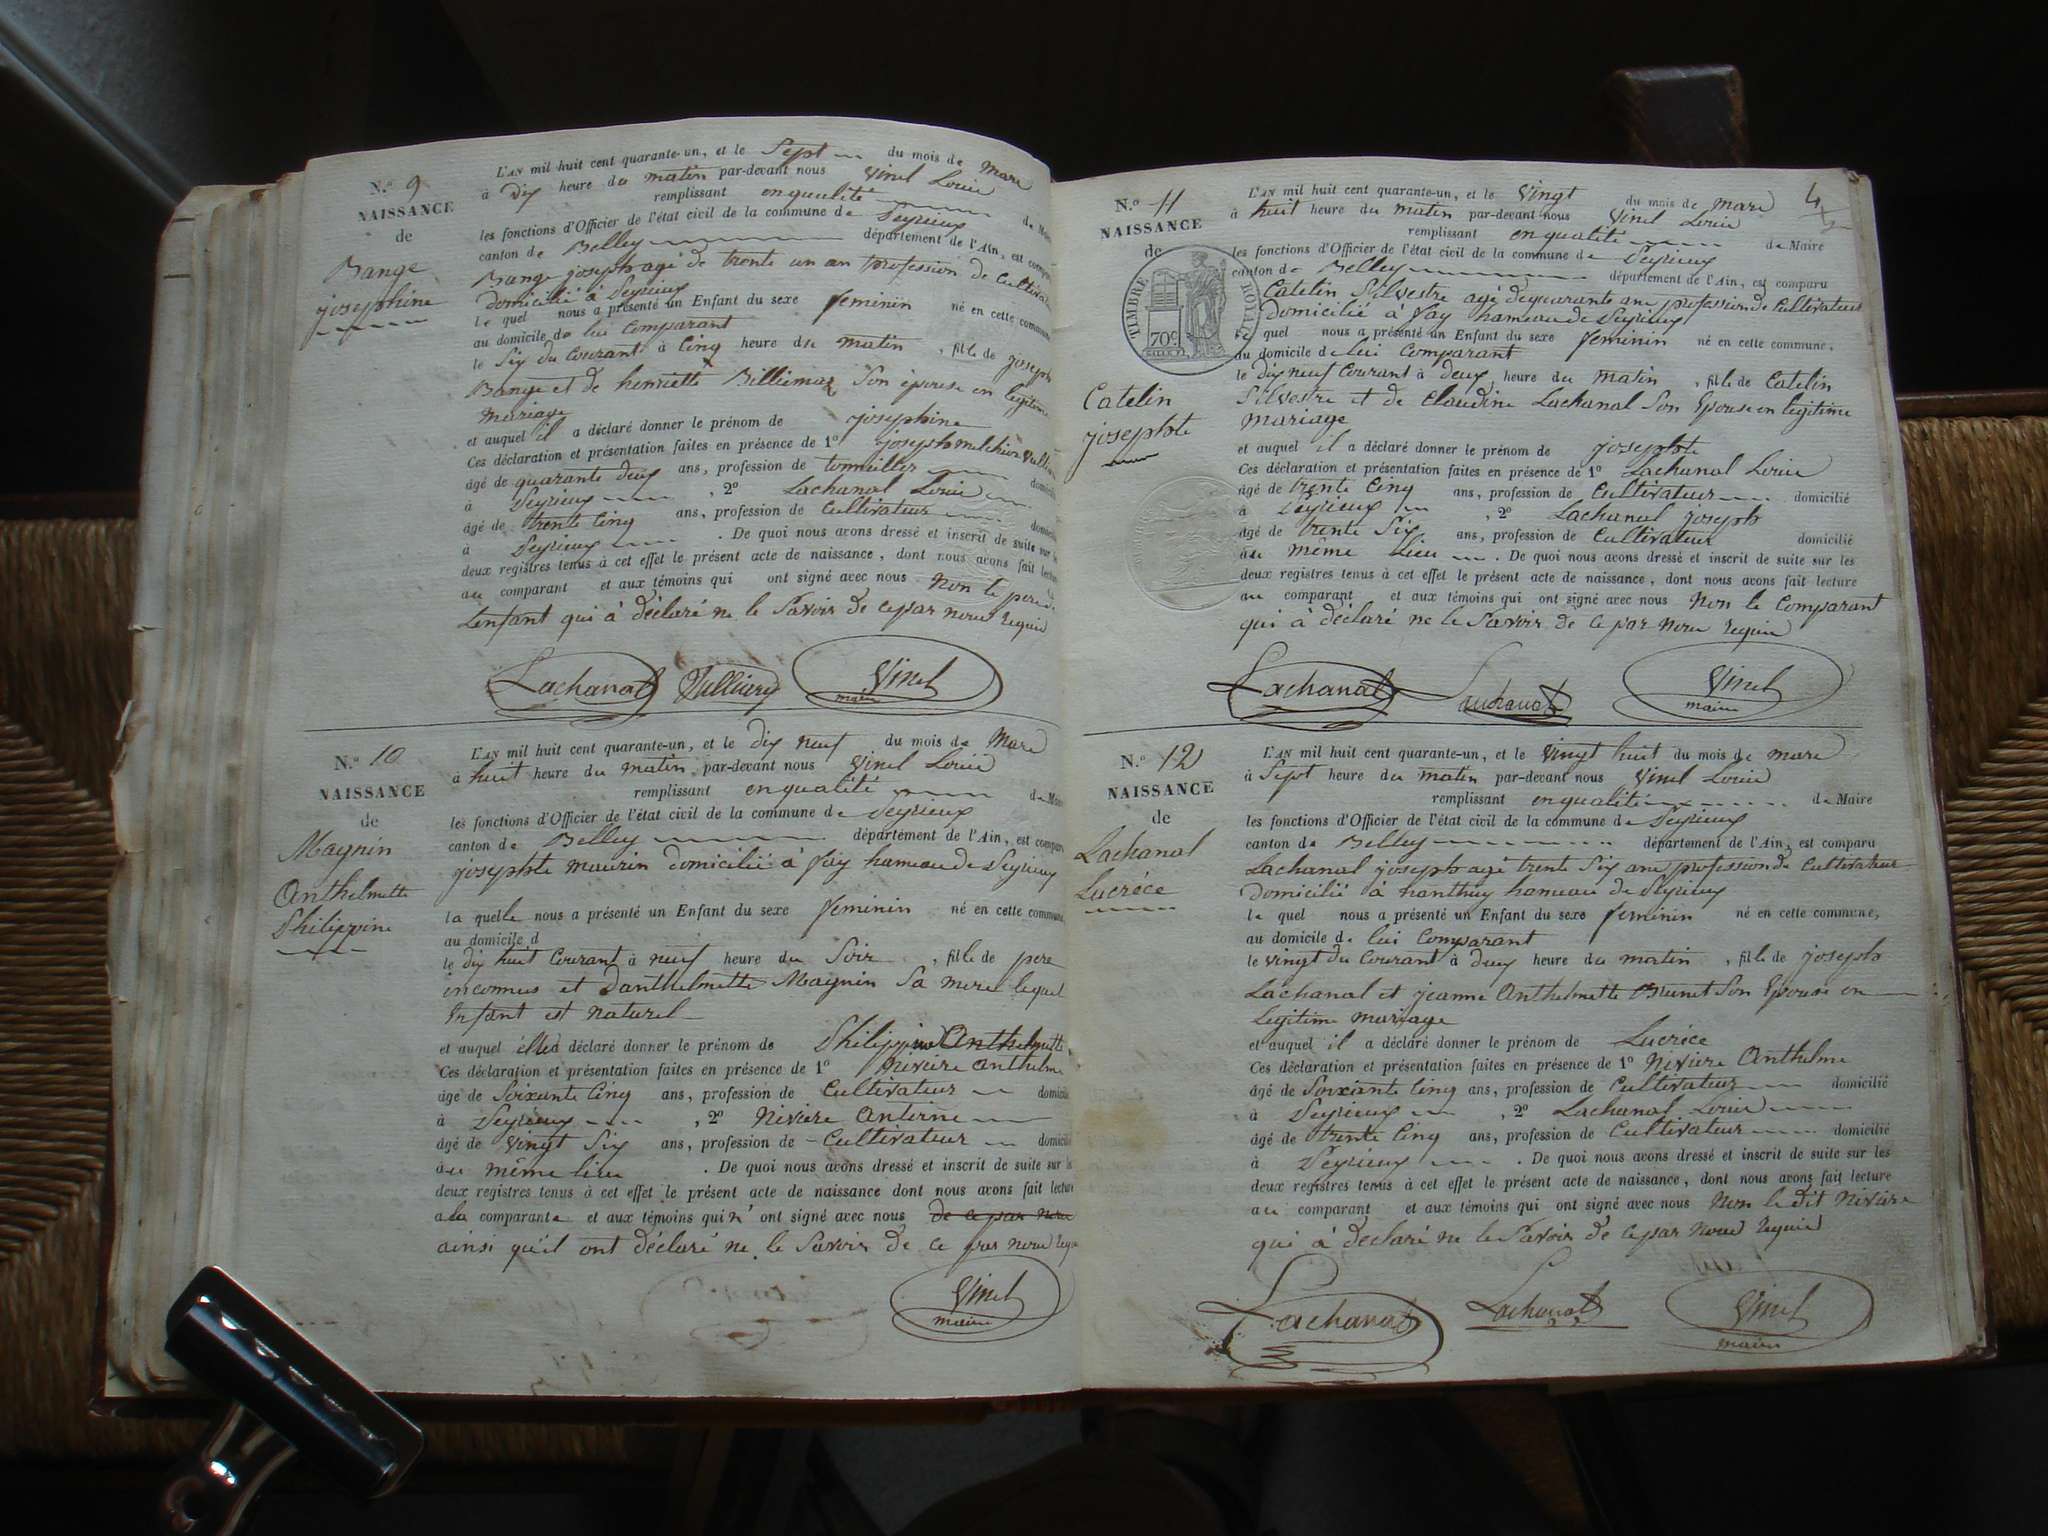 N.º 9
NAISSANCE
de
Bange
josephine
L'AN mil huit cent quarante-un, et le Sept du mois de mars
à dix heure du matin par-devant nous Vinel Louis
remplissant en qualité de Maire
les fonctions d'Officier de l'état civil de la commune de Peyrieux
canton de Belley département de l'Ain, est comparu
Bange joseph agé de trente un an profession de Cultivateur
domicilié à Peyrieux
le quel nous a présenté un Enfant du sexe feminin né en cette commune
au domicile de lui Comparant
le Six du Courant à Cinq heure du matin , fille de joseph
Bange et de henriette Billiemaz Son épouse en legitime
mariage
et auquel il a déclaré donner le prénom de josephine
Ces déclaration et présentation faites en présence de 1º joseph melchior
âgé de quarante deux ans, profession de tonnellier domicilié
à Peyrieux , 2º Lachanal Louis
âgé de trente Cinq ans, profession de Cultivateur domicilié
à Peyrieux . De quoi nous avons dressé et inscrit de suite sur les
deux registres tenus à cet effet le présent acte de naissance, dont nous avons fait lecture
au comparant et aux témoins qui ont signé avec nous Non le pere de
Lenfant qui à déclaré ne le Savoir de ce par nous requis
Lachanal Vulliery Vinel
maire
N.º 10
NAISSANCE
de
Magnin
Anthelmette
Philippine
L'AN mil huit cent quarante-un, et le dix neuf du mois de Mars
à huit heure du matin par-devant nous Vinel Louis
remplissant en qualité de Maire
les fonctions d'Officier de l'état civil de la commune de Peyrieux
canton de Belley département de l'Ain, est comparu
josephte maurin domicilié à fay hameau de Peyrieux
la quelle nous a présenté un Enfant du sexe feminin né en cette commune,
au domicile d
le dix huit Courant à neuf heure du Soir , fille de pere
inconnus et danthelmette Magnin Sa mere lequel
Enfant est naturel
et auquel elle a déclaré donner le prénom de Philippine Anthelmette
Ces déclaration et présentation faites en présence de 1º Niviere Anthelme
âgé de Soixante Cinq ans, profession de Cultivateur domicilié
à Peyrieux , 2º Niviere Antoine
âgé de vingt Six ans, profession de Cultivateur domicilié
au même lieu . De quoi nous avons dressé et inscrit de suite sur les
deux registres tenus à cet effet le présent acte de naissance dont nous avons fait lecture
a la comparante et aux témoins qui n'ont signé avec nous de ce par nous
ainsi qu'il ont déclaré ne le Savoir de ce par nous requis
Vinel
maire
4
N.º 11
NAISSANCE
de
TIMBRE ROYAL
70c
Catelin
josephte
L'AN mil huit cent quarante-un, et le Vingt du mois de mars
à huit heure du matin par-devant nous Vinel Louis
remplissant en qualité de Maire
les fonctions d'Officier de l'état civil de la commune de Peyrieux
canton de Belley département de l'Ain, est comparu
Catelin Silvestre agé de quarante ans profession de Cultivateur
domicilié à fay hameau de Peyrieux
le quel nous a présenté un Enfant du sexe feminin né en cette commune,
au domicile de lui Comparant
le dix neuf Courant à deux heure du matin , fille de Catelin
Silvestre et de Claudine Lachanal Son Epouse en legitime
mariage
et auquel il a déclaré donner le prénom de josephte
Ces déclaration et présentation faites en présence de 1º Lachanal Louis
âgé de trente Cinq ans, profession de Cultivateur domicilié
à Peyrieux , 2º Lachanal joseph
âgé de trente Six ans, profession de Cultivateur domicilié
au même Lieu . De quoi nous avons dressé et inscrit de suite sur les
deux registres tenus à cet effet le présent acte de naissance, dont nous avons fait lecture
au comparant et aux témoins qui ont signé avec nous Non le Comparant
qui à déclaré ne le Savoir de ce par nous requis
Lachanal Lachanal Vinel
maire
N.º 12
NAISSANCE
de
Lachanal
Lucréce
L'AN mil huit cent quarante-un, et le Vingt huit du mois de mars
à Sept heure du matin par-devant nous Vinel Louis
remplissant en qualité de Maire
les fonctions d'Officier de l'état civil de la commune de Peyrieux
canton de Belley département de l'Ain, est comparu
Lachanal joseph agé trente Six ans profession de Cultivateur
domicilié à nanthuy hameau de Peyrieux
le quel nous a présenté un Enfant du sexe feminin né en cette commune,
au domicile de lui Comparant
le vingt du Courant à deux heure du matin , fille de joseph
Lachanal et jeanne Anthelmette Brunet Son Epouse en
Legitime mariage
et auquel il a déclaré donner le prénom de Lucréce
Ces déclaration et présentation faites en présence de 1º Niviere Anthelme
âgé de Soixante Cinq ans, profession de Cultivateur domicilié
à Peyrieux , 2º Lachanal Louis
âgé de trente Cinq ans, profession de Cultivateur domicilié
à Peyrieux . De quoi nous avons dressé et inscrit de suite sur les
deux registres tenus à cet effet le présent acte de naissance, dont nous avons fait lecture
au comparant et aux témoins qui ont signé avec nous Non le dit Niviere
qui à déclaré ne le Savoir de ce par nous requis
Lachanal Lachanal Vinel
maire